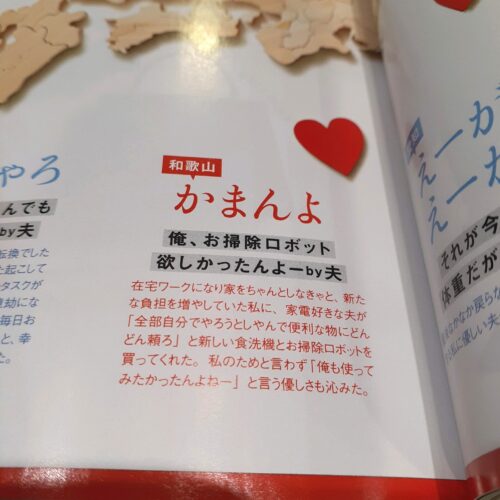 やろ
んでも
by夫
転換でした
た起こして
タスクが
毎日お
と、幸
和歌山
かまんよ
俺、お掃除ロボット
欲しかったんよーby夫
在宅ワークになり家をちゃんとしなきゃと、新た
な負担を増やしていた私に、家電好きな夫が
「全部自分でやろうとしやんで便利な物にどん
どん頼ろ」と新しい食洗機とお掃除ロボットを
買ってくれた。私のためと言わず「俺も使って
みたかったんよねー」と言う優しさも沁みた。
えーか
えーか
それが今
体重だが
なかなか戻らな
私に優しい夫